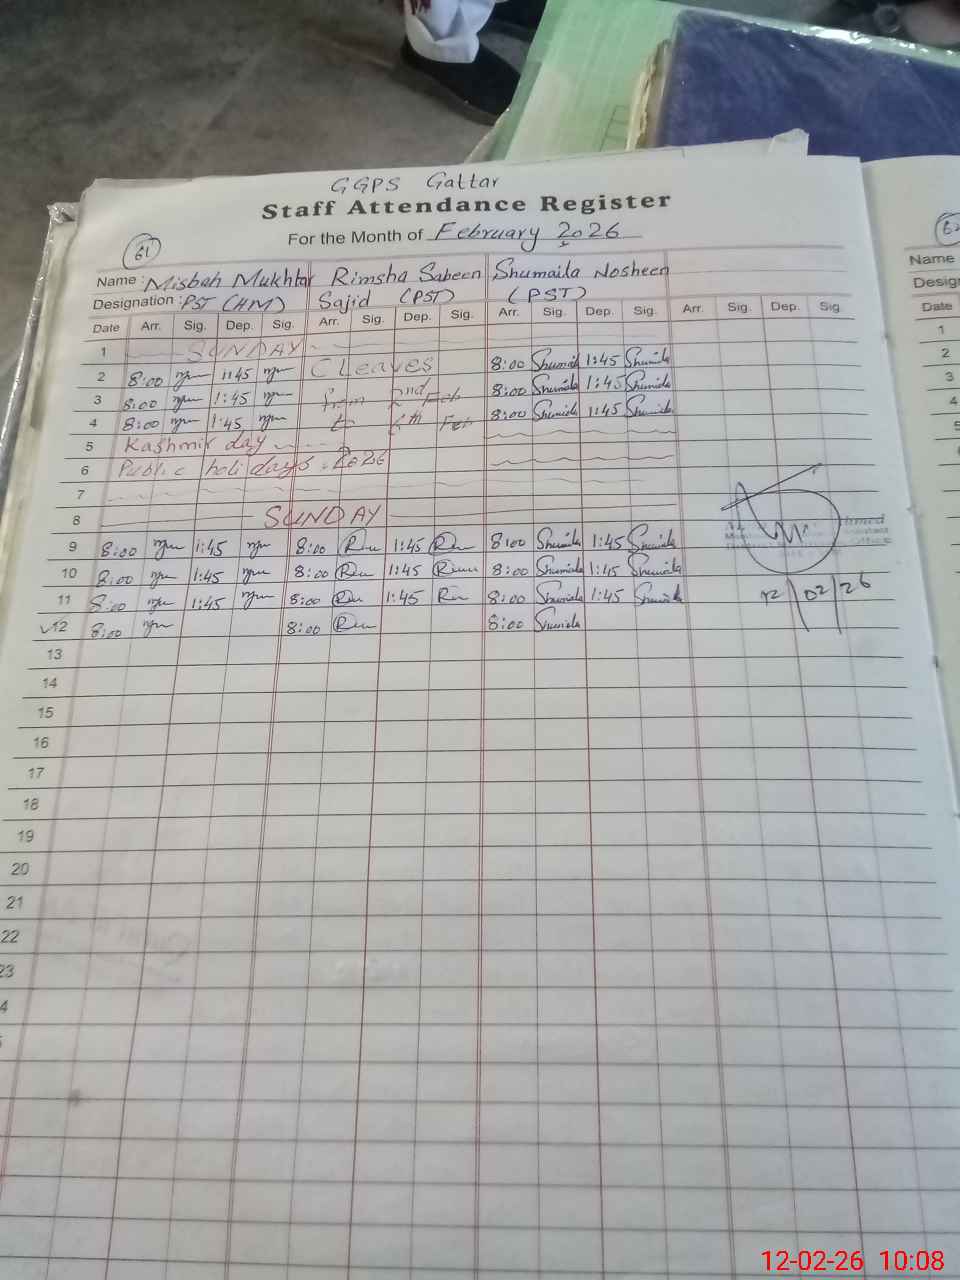 GGPS Gattar
Staff Attendance Register
For the Month of February 2026
61
62
Name : Misbah Mukhtar Rimsha Sabeen Shumaila Nosheen
Name
Designation : PST (HM) Sajid (PST) (PST)
Desig
Date Arr. Sig. Dep. Sig. Arr. Sig. Dep. Sig. Arr. Sig. Dep. Sig. Arr. Sig. Dep. Sig.
Date
1 SUNDAY
1
2 8:00 1:45 C Leaves 8:00 Shumaila 1:45 Shumaila
2
3 8:00 1:45 from 2nd Feb 8:00 Shumaila 1:45 Shumaila
3
4 8:00 1:45 to 4th Feb 8:00 Shumaila 1:45 Shumaila
4
5 Kashmir day
5
6 Public holidays 2026
7
8 SUNDAY
9 8:00 1:45 8:00 1:45 8:00 Shumaila 1:45 Shumaila
10 8:00 1:45 8:00 1:45 8:00 Shumaila 1:45 Shumaila
11 8:00 1:45 8:00 1:45 8:00 Shumaila 1:45 Shumaila
12/02/26
12 8:00 8:00 8:00 Shumaila
13
14
15
16
17
18
19
20
21
22
23
4
12-02-26 10:08